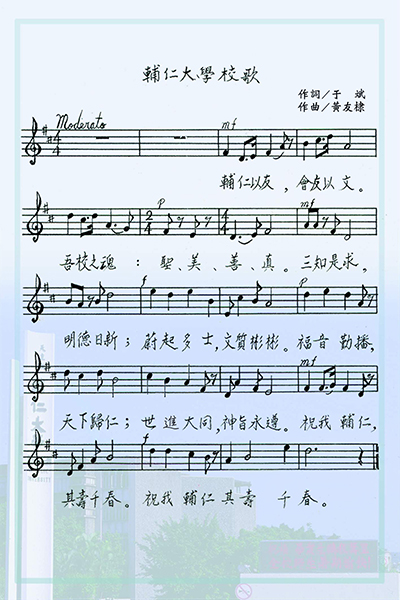 輔仁大學校歌
作詞／于 斌
作曲／黃友棣
Moderato
mf
輔仁以友，會友以文。
p mf
吾校之魂：聖、美、善、真。三知是求，
f p
明德日新；蔚起多士，文質彬彬。福音勤播，
mf
天下歸仁；世進大同，神旨永遵。祝我輔仁，
f
其壽千春。祝我輔仁其壽千春。